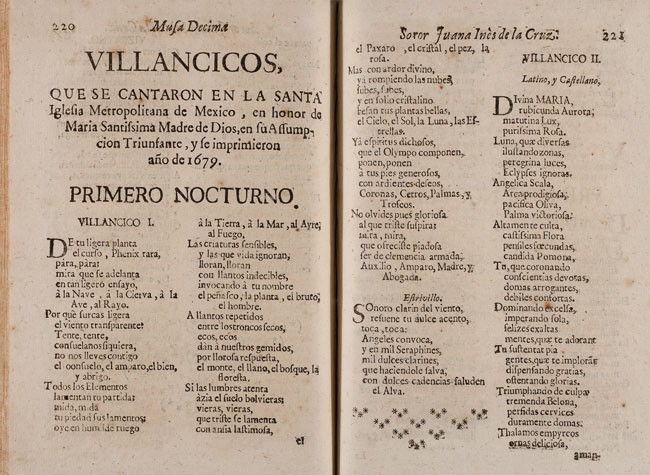 220 Musa Decima
VILLANCICOS,
QUE SE CANTARON EN LA SANTA
Iglesia Metropolitana de Mexico, en honor de
Maria Santissima Madre de Dios, en su Assump-
cion Triunfante, y se imprimieron
año de 1679.
PRIMERO NOCTURNO.
VILLANCICO I.
DE tu ligera planta
el curso, Phenix rara,
pára, pára:
mira que se adelanta
en tan ligero ensayo,
à la Nave, à la Cierva, à la
Ave, al Rayo.
Por què surcas ligera
el viento transparente?
Tente, tente,
consuelanos siquiera,
no nos lleves contigo
el consuelo, el amparo, el bien,
y abrigo.
Todos los Elementos
lamentan tu partida:
mida, mida
tu piedad sus lamentos:
oye en humilde ruego
à la Tierra, à la Mar, al Ayre,
al Fuego.
Las criaturas sensibles,
y las que vida ignoran,
lloran, lloran
con llantos indecibles,
invocando à tu nombre
el peñasco, la planta, el bruto,
el hombre.
A llantos repetidos
entre los troncos secos,
ecos, ecos
dàn à nuestros gemidos,
por llorosa respuesta,
el monte, el llano, el bosque, la
floresta.
Si las lumbres atenta
àzia el suelo bolvieras;
vieras, vieras,
que triste se lamenta
con ansia lastimosa,
el
Soror Juana Inès de la Cruz. 221
el Paxaro, el cristal, el pez, la
rosa.
Mas con ardor divino,
ya rompiendo las nubes,
subes, subes,
y en solio cristalino
besan tus plantas bellas,
el Cielo, el Sol, la Luna, las Es-
trellas.
Yà espiritus dichosos,
que el Olympo componen,
ponen, ponen
à tus pies generosos,
con ardientes deseos,
Coronas, Cetros, Palmas, y
Trofeos.
No olvides pues gloriosa
al que triste suspira:
mira, mira,
que ofreciste piadosa
ser de clemencia armada,
Auxilio, Amparo, Madre, y
Abogada.
Estrivillo.
SOnoro clarin del viento,
resuene tu dulce acento,
toca, toca:
Angeles convoca,
y en mil Seraphines,
mil dulces clarines,
que haciendole salva,
con dulces cadencias saluden
el Alva.
VILLANCICO II.
Latino, y Castellano.
DIvina MARIA,
rubicunda Aurora;
matutina Lux,
purissima Rosa.
Luna, quæ diversas
ilustrando zonas,
peregrina luces,
Eclypses ignoras.
Angelica Scala,
Arca prodigiosa,
pacifica Oliva,
Palma victoriosa.
Altamente culta,
castissima Flora
pensiles fœcundas,
candida Pomona,
Tu, que coronando
conscientias devotas,
domas arrogantes,
debiles confortas.
Dominando excelsa,
imperando sola,
felizes exaltas
mentes, quæ te adorant
Tu sustentat pia
gentes, quæ te implorãt
dispensando gratias,
ostentando glorias.
Triumphando de culpa
tremenda Belona,
perfidas cervices
duramente domas.
Thalamos empyreos
ornas deliciosa,
aman-